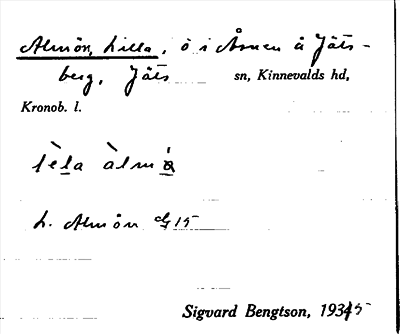 Almön, Lilla, ö i Åsnen å Jäts-
berg, Jäts sn, Kinnevalds hd,
Kronob. l.
lèla àlm
L. Almön G 15
Sigvard Bengtson, 1935